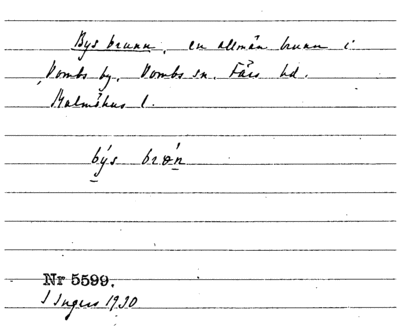 Bys brunn, en allmän brunn i
Vombs by, Vombs sn. Färs hd.
Malmöhus l.
býs brøn
Nr 5599.
I Ingers 1930